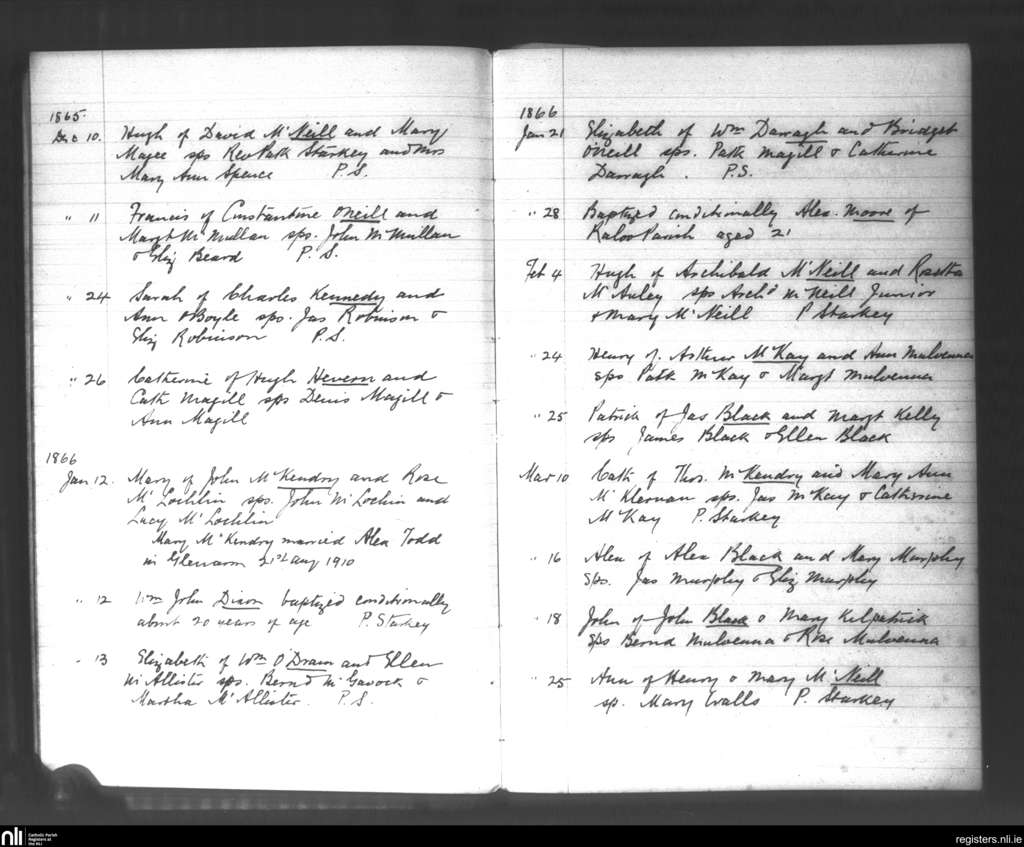 1865
Dec 10. Hugh of David McNeill and Mary
Magee sps Rev Patk Starkey and Mrs
Mary Ann Spence P.S.
" 11 Francis of Constantine O'Neill and
Margt McMullan sps. John McMullan
& Eliz Beard P.S.
" 24 Sarah of Charles Kennedy and
Ann O'Boyle sps. Jas Robinson &
Eliz Robinson P.S.
" 26 Catherine of Hugh Hevern and
Cath Magill sps Denis Magill &
Ann Magill
1866
Jan 12. Mary of John McKendry and Rose
McLochlin sps. John McLochin and
Lucy McLochlin
Mary McKendry married Alex Todd
in Glenarm 21st Aug 1910
" 12 Wm John Dixon baptized conditionally
about 20 years of age P. Starkey
" 13 Elizabeth of Wm O'Drain and Ellen
McAllister sps. Bernd McGavock &
Martha McAllister. P.S.
1866
Jan 21 Elizabeth of Wm Darragh and Bridget
O'Neill sps. Patk Magill & Catherine
Darragh. P.S.
" 28 Baptized conditionally Alex. Moore of
Raloo Parish aged 21
Feb 4 Hugh of Archibald McNeill and Rosetta
McAuley sps Archd McNeill Junior
& Mary McNeill P Starkey
" 24 Henry of Arthur McKay and Ann Mulvenna
sps Patk McKay & Margt Mulvenna
" 25 Patrick of Jas Black and Margt Kelly
sps James Black & Ellen Black
Mar 10 Cath of Thos. McKendry and Mary Ann
McKlernan sps. Jas McKay & Catherine
McKay P. Starkey
" 16 Alex of Alex Black and Mary Murphy
Sps. Jas Murphy & Eliz Murphy
" 18 John of John Black & Mary Kilpatrick
Sps Bernd Mulvenna & Rose Mulvenna
" 25 Ann of Henry & Mary McNeill
sp. Mary Walls P. Starkey
nli Catholic Parish
Registers at
the NLI
registers.nli.ie